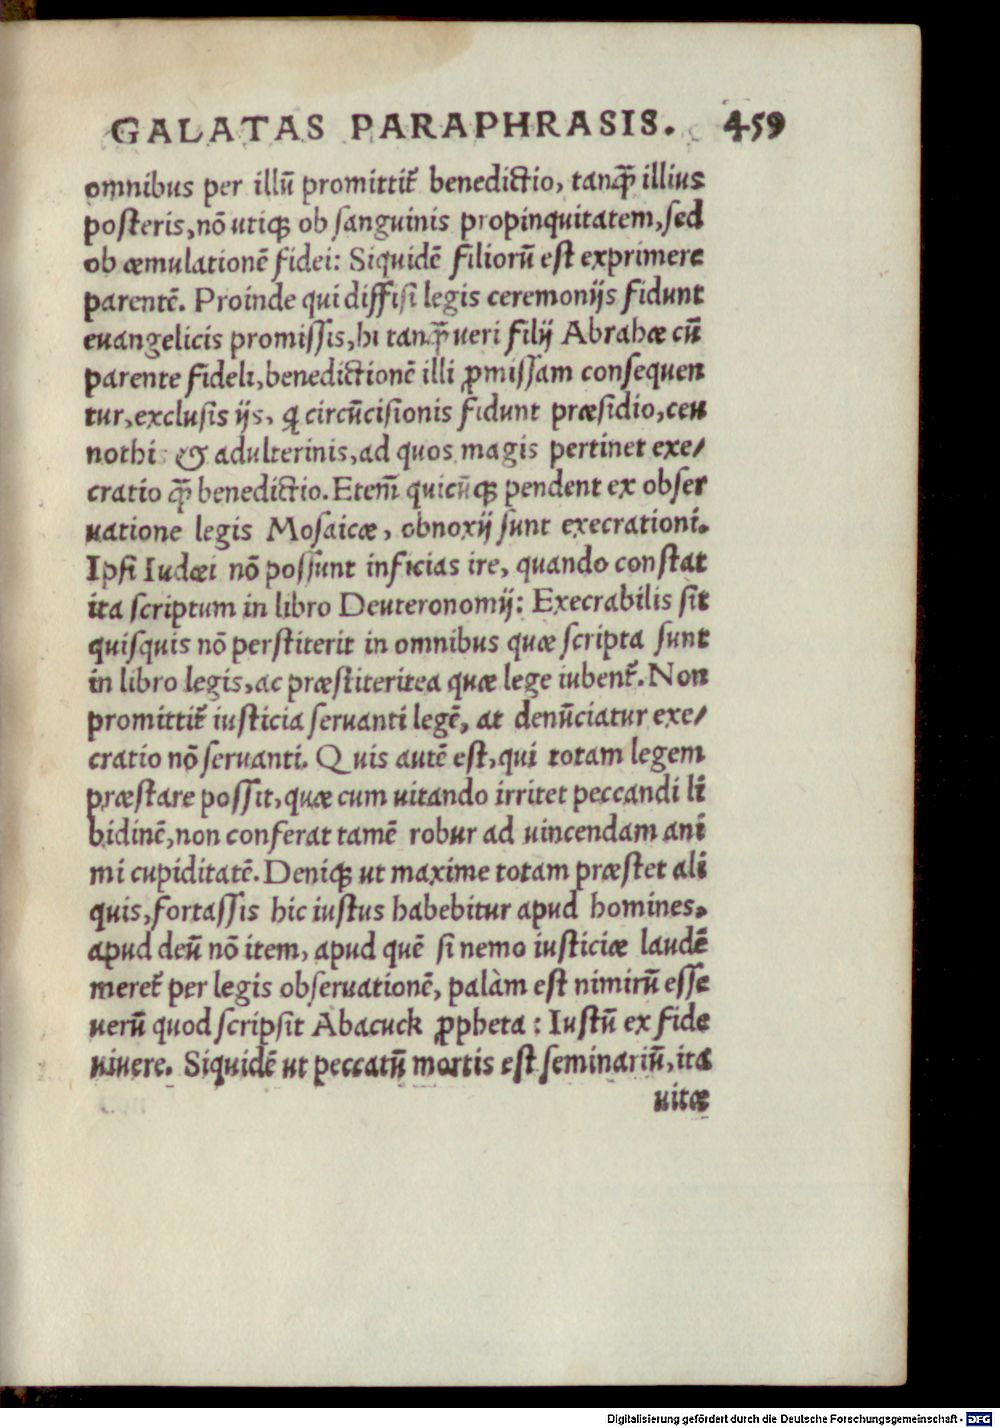 GALATAS PARAPHRASIS. 459
omnibus per illū promittit᷒ benedictio, tanq̃ illius
posteris, nō utiqꝫ ob sanguinis propinquitatem, sed
ob æmulationē fidei: Siquidē filiorū est exprimere
parentē. Proinde qui diffisi legis ceremonijs fidunt
euangelicis promissis, hi tanq̃ ueri filij Abrahæ cū
parente fideli, benedictionē illi ꝓmissam consequen
tur, exclusis ijs, q circūcisionis fidunt præsidio, ceu
nothi & adulterinis, ad quos magis pertinet exe/
cratio q̃ benedictio. Etem̄ quicūqꝫ pendent ex obser
uatione legis Mosaicæ, obnoxij sunt execrationi.
Ipsi Iudæi nō possunt inficias ire, quando constat
ita scriptum in libro Deuteronomij: Execrabilis sit
quisquis nō perstiterit in omnibus quæ scripta sunt
in libro legis, ac præstiterit ea quæ lege iubent᷒. Non
promittit᷒ iusticia seruanti legē, at denūciatur exe/
cratio nō seruanti. Quis autē est, qui totam legem
præstare possit, quæ cum uitando irritet peccandi li
bidinē, non conferat tamē robur ad uincendam ani
mi cupiditatē. Deniqꝫ ut maxime totam præstet ali
quis, fortassis hic iustus habebitur apud homines,
apud deū nō item, apud quē si nemo iusticiæ laudē
meret᷒ per legis obseruationē, palàm est nimirū esse
uerū quod scripsit Abacuck ꝓpheta: Iustū ex fide
uiuere. Siquidē ut peccatū mortis est seminariū, ita
uitæ
Digitalisierung gefördert durch die Deutsche Forschungsgemeinschaft - DFG